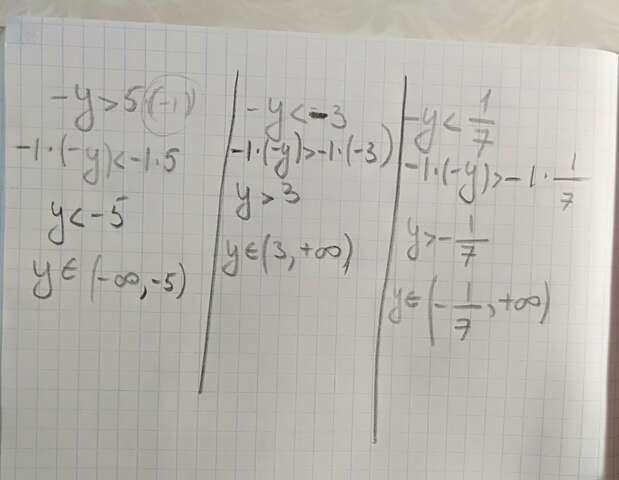 -y > 5 (-1)
-1·(-y) < -1·5
y < -5
y ∈ (-∞, -5)
-y < -3
-1·(-y) > -1·(-3)
y > 3
y ∈ (3, +∞)
-y < 1/7
-1·(-y) > -1·1/7
y > -1/7
y ∈ (-1/7, +∞)